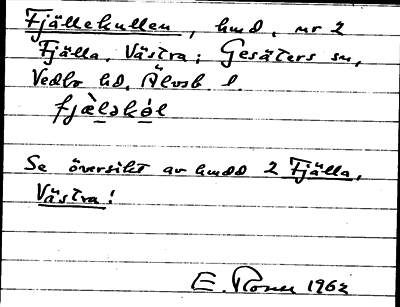 Fjällekullen, hmd, nr 2
Fjälla, Västra; Gesäters sn,
Vedbo hd, Älvsb. l.
fjæ̀ləkəl
Se översikt av hmdd 2 Fjälla,
Västra!
E. 1962